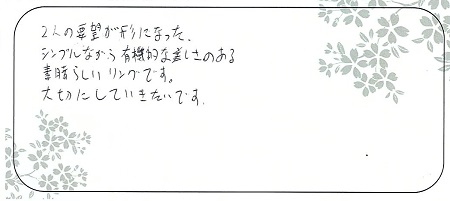 2人の要望が形になった、
シンプルながら有機的な美しさのある
素晴らしいリングです。
大切にしていきたいです.